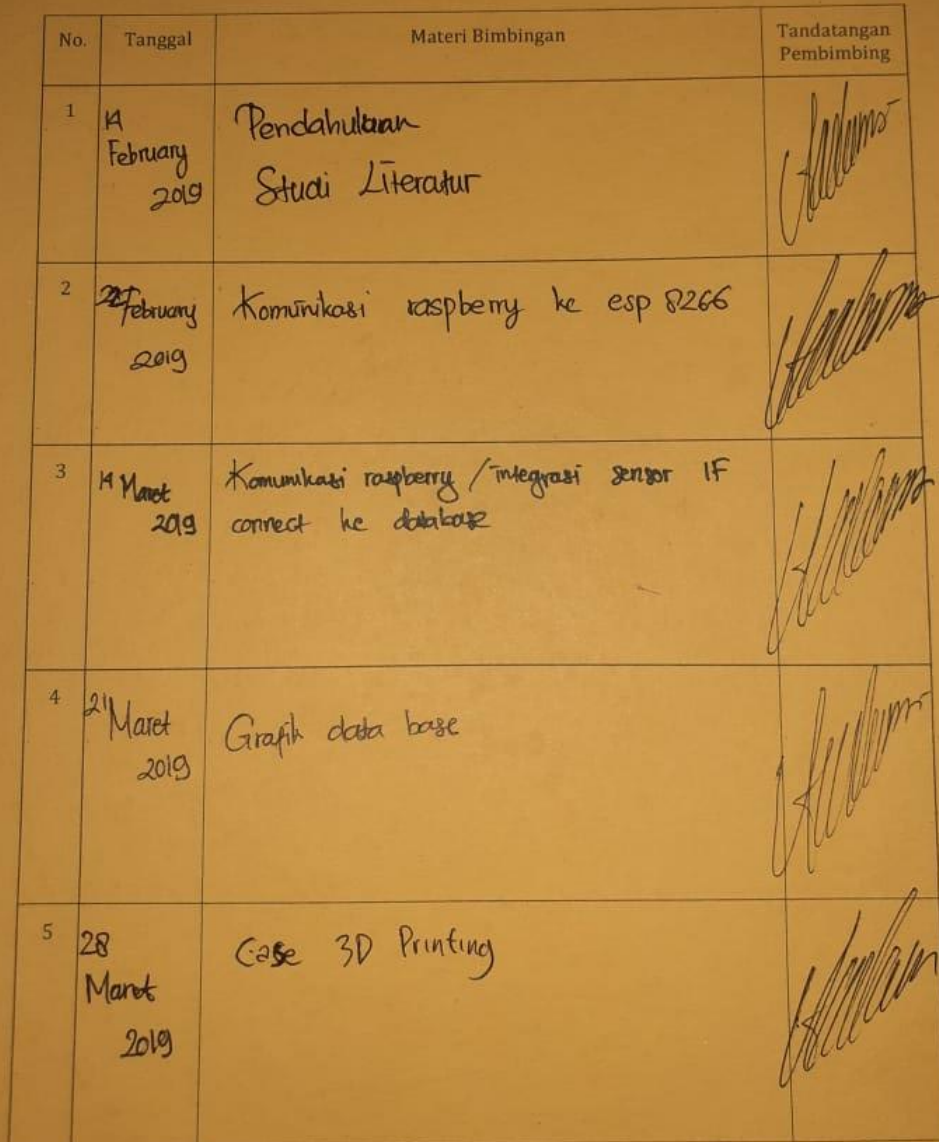 No.
Tanggal
Materi Bimbingan
Tandatangan
Pembimbing
1
14
February
2019
Pendahuluan
Studi Literatur
2
February
2019
Komunikasi raspberry ke esp 8266
3
14 Maret
2019
Komunikasi raspberry / integrasi sensor IF
connect ke database
4
21 Maret
2019
Grafik data base
5
28
Maret
2019
Case 3D Printing